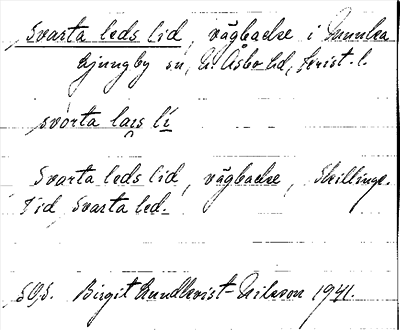 Svarta leds lid, vägbacke i Munka
Ljungby sn, N. Åsbo hd, Krist. l.
svòrta lais li
Svarta leds lid, vägbacke, Skillinge.
Vid Svarta led.
SOS. Birgit Lundkvist-Nilsson 1941.